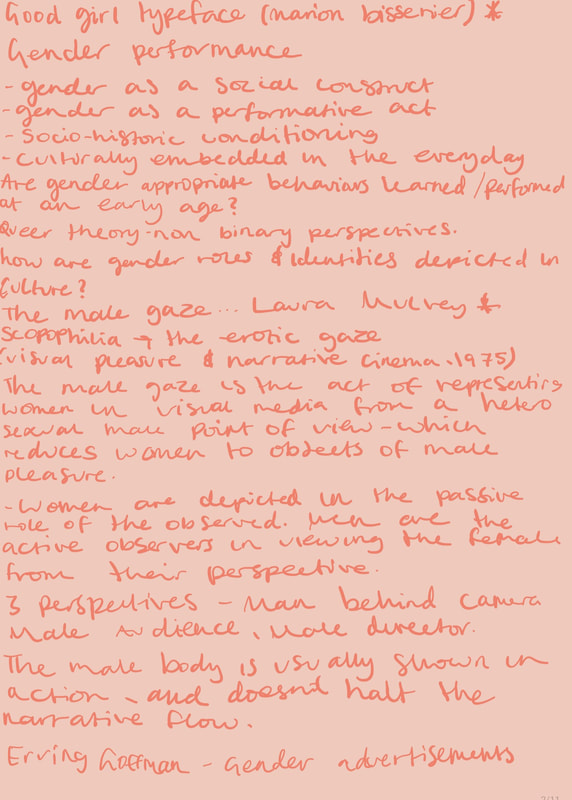 Good girl typeface (marion bisserier) *
Gender performance
- gender as a social construct
- gender as a performative act
- Socio-historic conditioning
- Culturally embedded in the everyday
Are gender appropriate behaviours learned / performed
at an early age?
Queer theory-non binary perspectives.
how are gender roles & identities depicted in
Culture?
The male gaze... Laura Mulvey *
Scopophilia → the erotic gaze
(visual pleasure & narrative cinema. 1975)
The male gaze is the act of representing
women in visual media from a hetero
sexual male point of view - which
reduces women to objects of male
pleasure.
- Women are depicted in the passive
role of the observed. Men are the
active observers in viewing the female
from their perspective.
3 perspectives - Man behind camera
Male Audience, Male director.
The male body is usually shown in
action, and doesn't halt the
narrative flow.
Erving Goffman - Gender advertisements